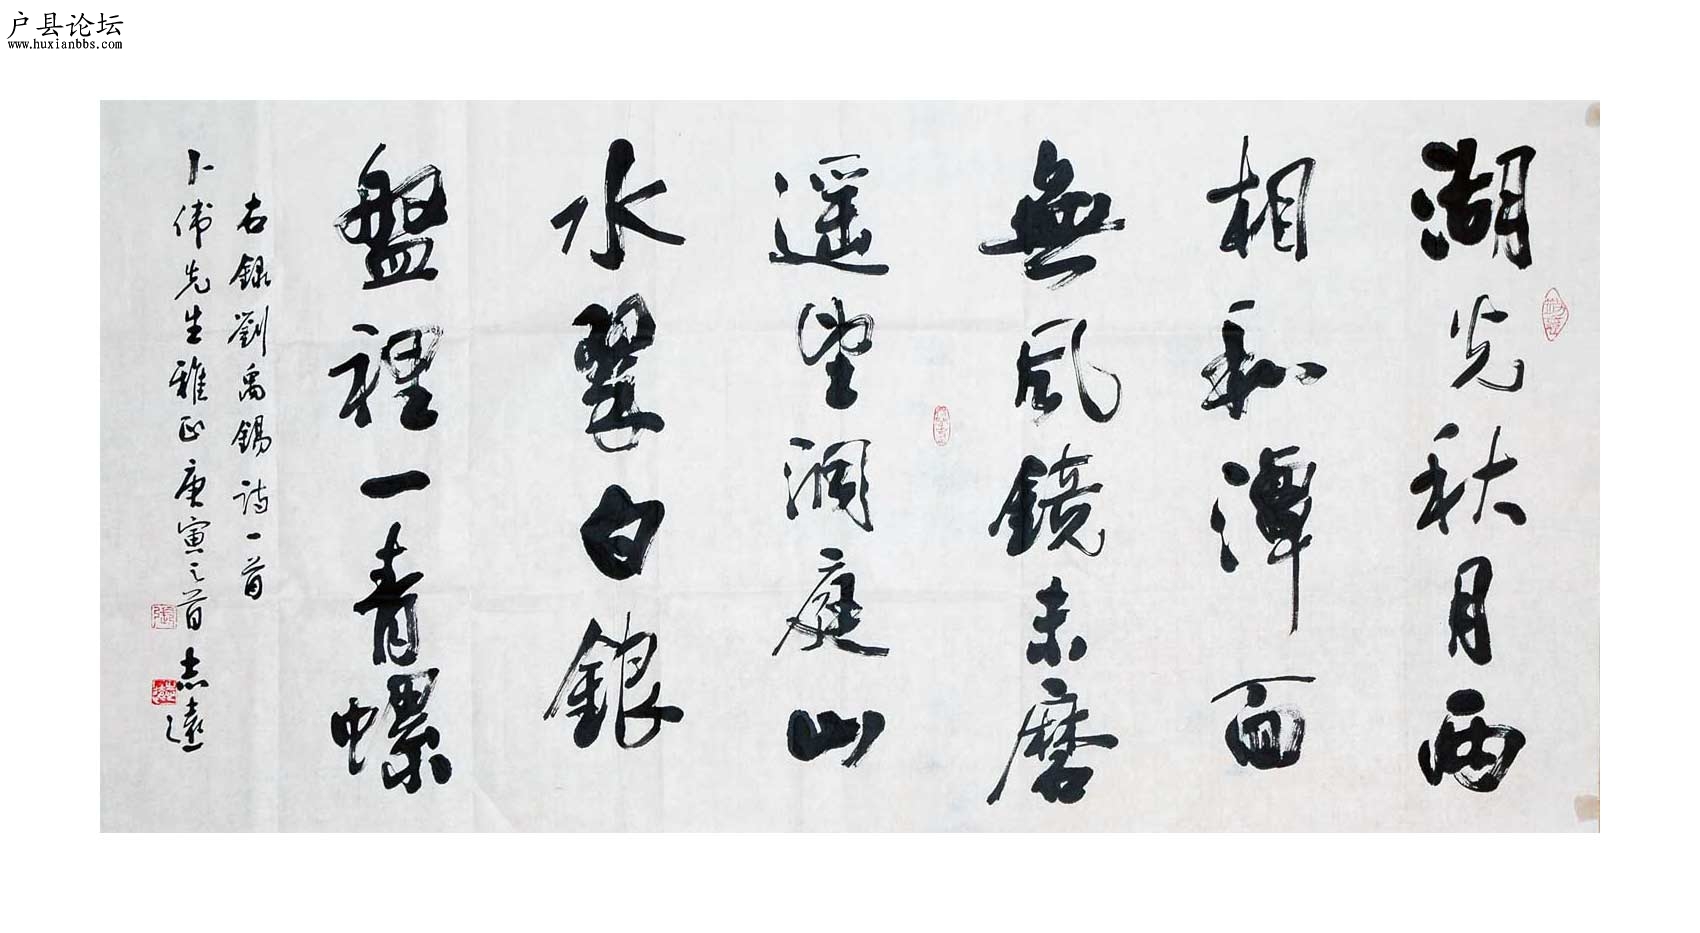 户县论坛
www.huxianbbs.com
湖光秋月两
相和潭面
無風鏡未磨
遥望洞庭山
水翠白銀
盤裡一青螺
右録劉禹錫詩一首
卜偉先生雅正庚寅之首志遠